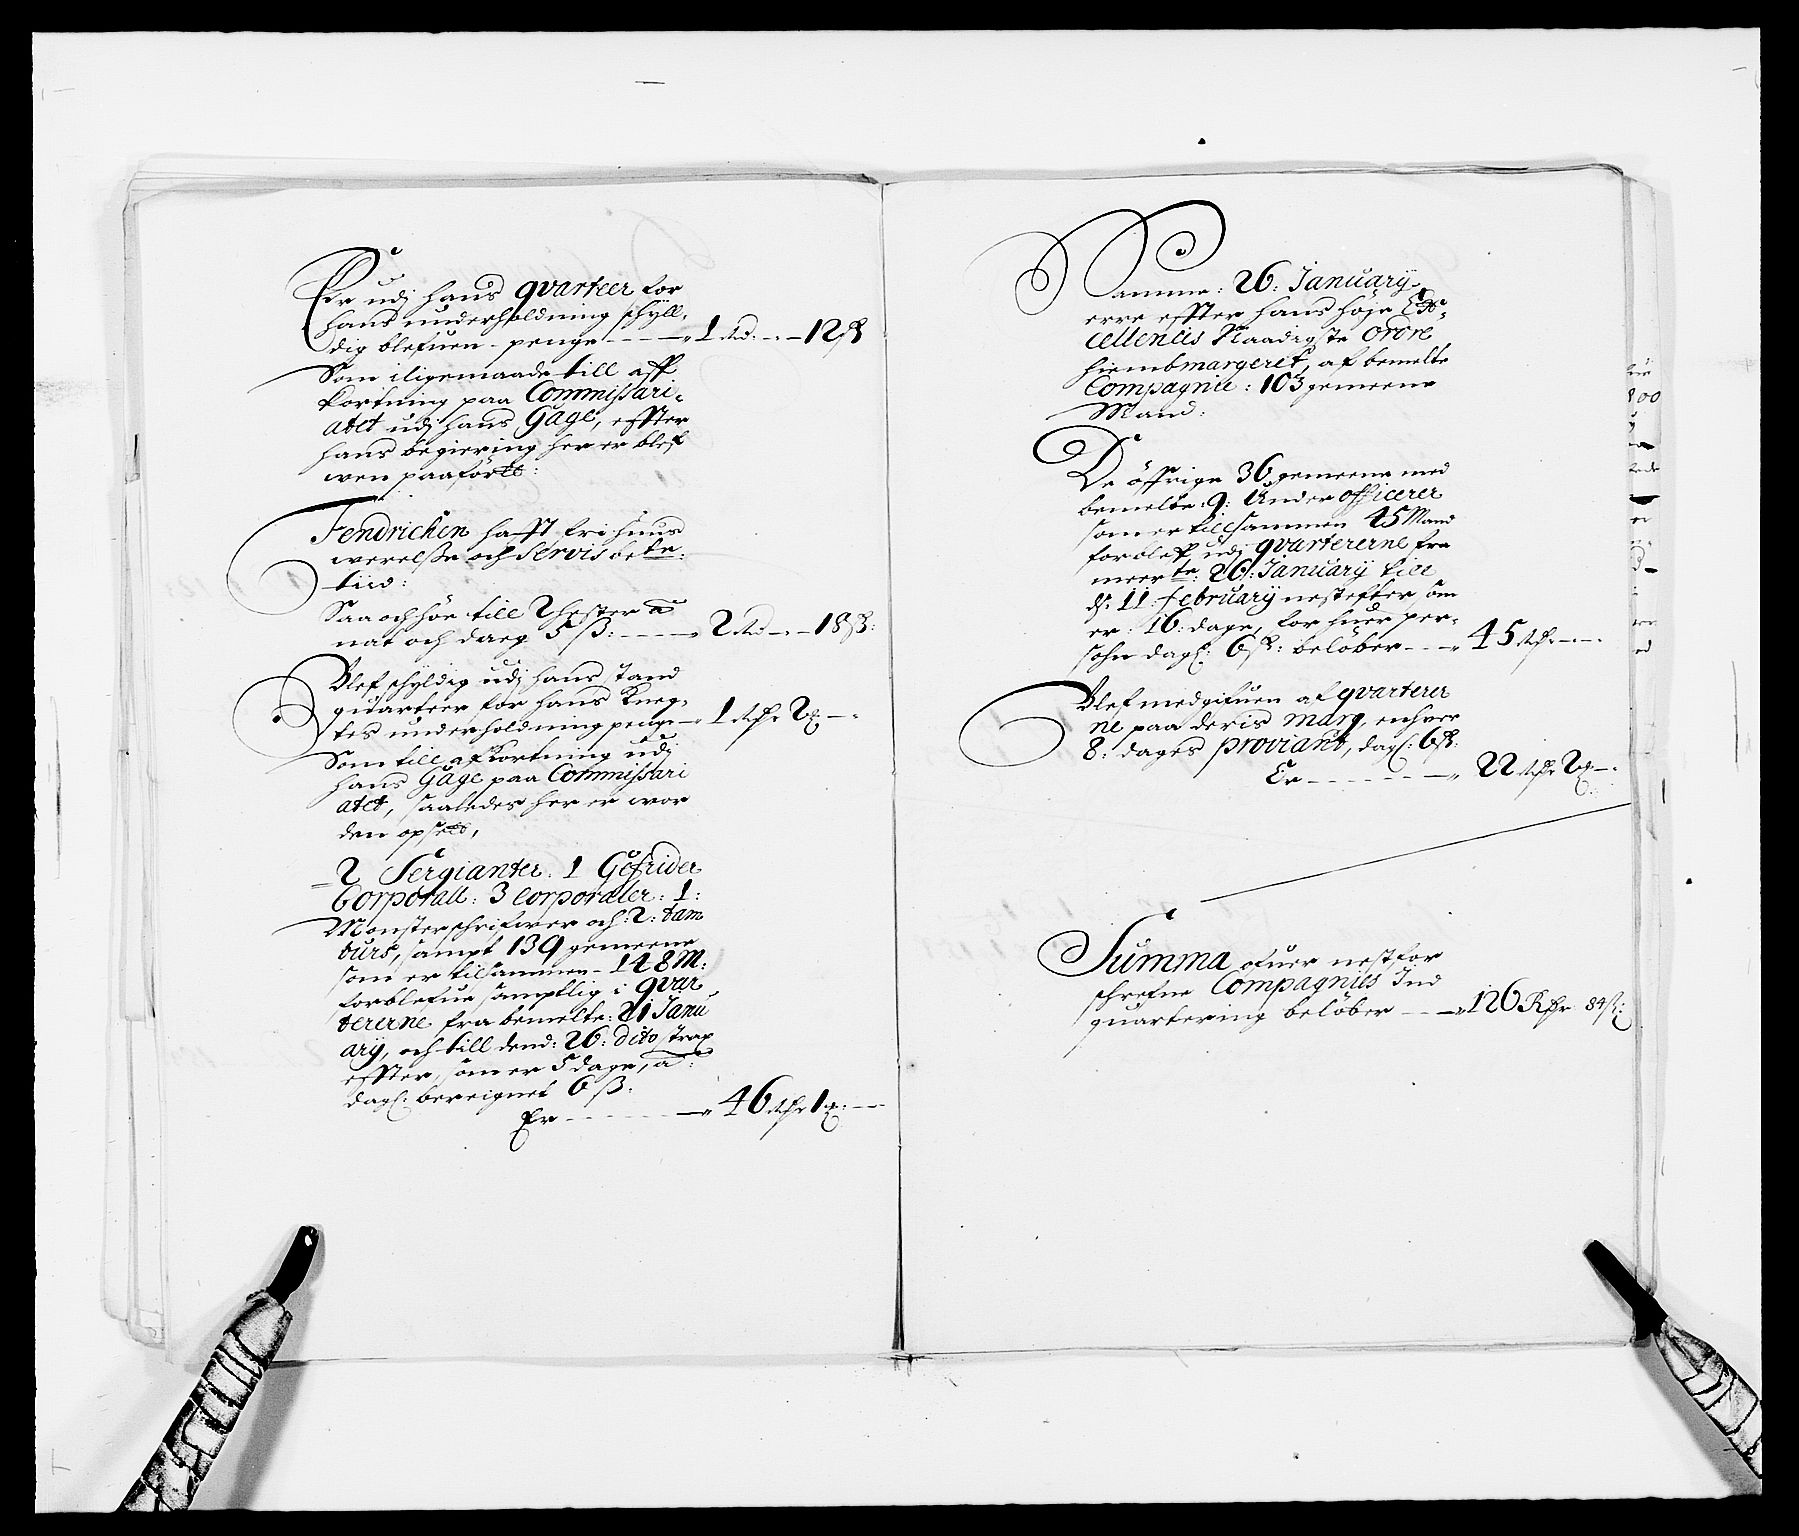 Er udj hans qvarteer for
hans underholdning schyll,
dig blefuen penge - - - - 1 Rd: - - 12 ß
Som iligemaade till aff
kortning paa Commissari-
atet udj hans Gage, effter
hans begiering her er blef
wen paaførtt:
Fendrichen hafft fri huus
werelsse och Servis be:te:
tiid:
Saa och höe till 2 hester a
nat och daeg 5 ß: - - - 2 Rd - - 18 ß:
Blef schyldig udj hans stand
quarteer, for hans Kneg-
tes underholdning penge - 1 Rdr 2 ℳ - -
Som till afkortning udj
hans Gage paa Commissari
atet, saaledes her er wor
den opsett,
2 Sergianter. 1 Gefrider
Corporall: 3 Corporaler: 1:
Mønsterschrifwer och: 2: tam
burs, sampt 139 gemeene
som er tilsammen - 148 M:
forblefue samptlig i qvar
tererne fra bemelte: 21 Janu
ary, och till dend: 26: dito strax
effter, som er 5 dage, a:
dagl: bereignet 6 ß:
Er - - - - - - 46 Rdr 1 ℳ: - -
Samme: 26: January
erre effter hans höje Ex-
cellentis Naadigste Ordre
hiembmargeret, af bemelte
Compagnie: 103 gemeene
Mand:
De öffrige 36 gemeene med
bemelte: 9: Under officerer
som er till sammen 45 Mand
forblef udj qvartererne fra
meer:te: 26: January till
d: 11: february nestefter, som
er: 16: dage, for huer per-
sohn dagl: 6 ß: belöber - - - 45 Rdr - - -
Blef medgifuen af qvarterer
ne paa deris marg, enhver
8: dages proviant, dagl: 6 ß:
Er - - - - - - 22 Rdr 2 ℳ - -
Summa ofuer nestfor
schrefne Compagnies Ind
quartering belöber - - - 126 Rdr 84 ß: